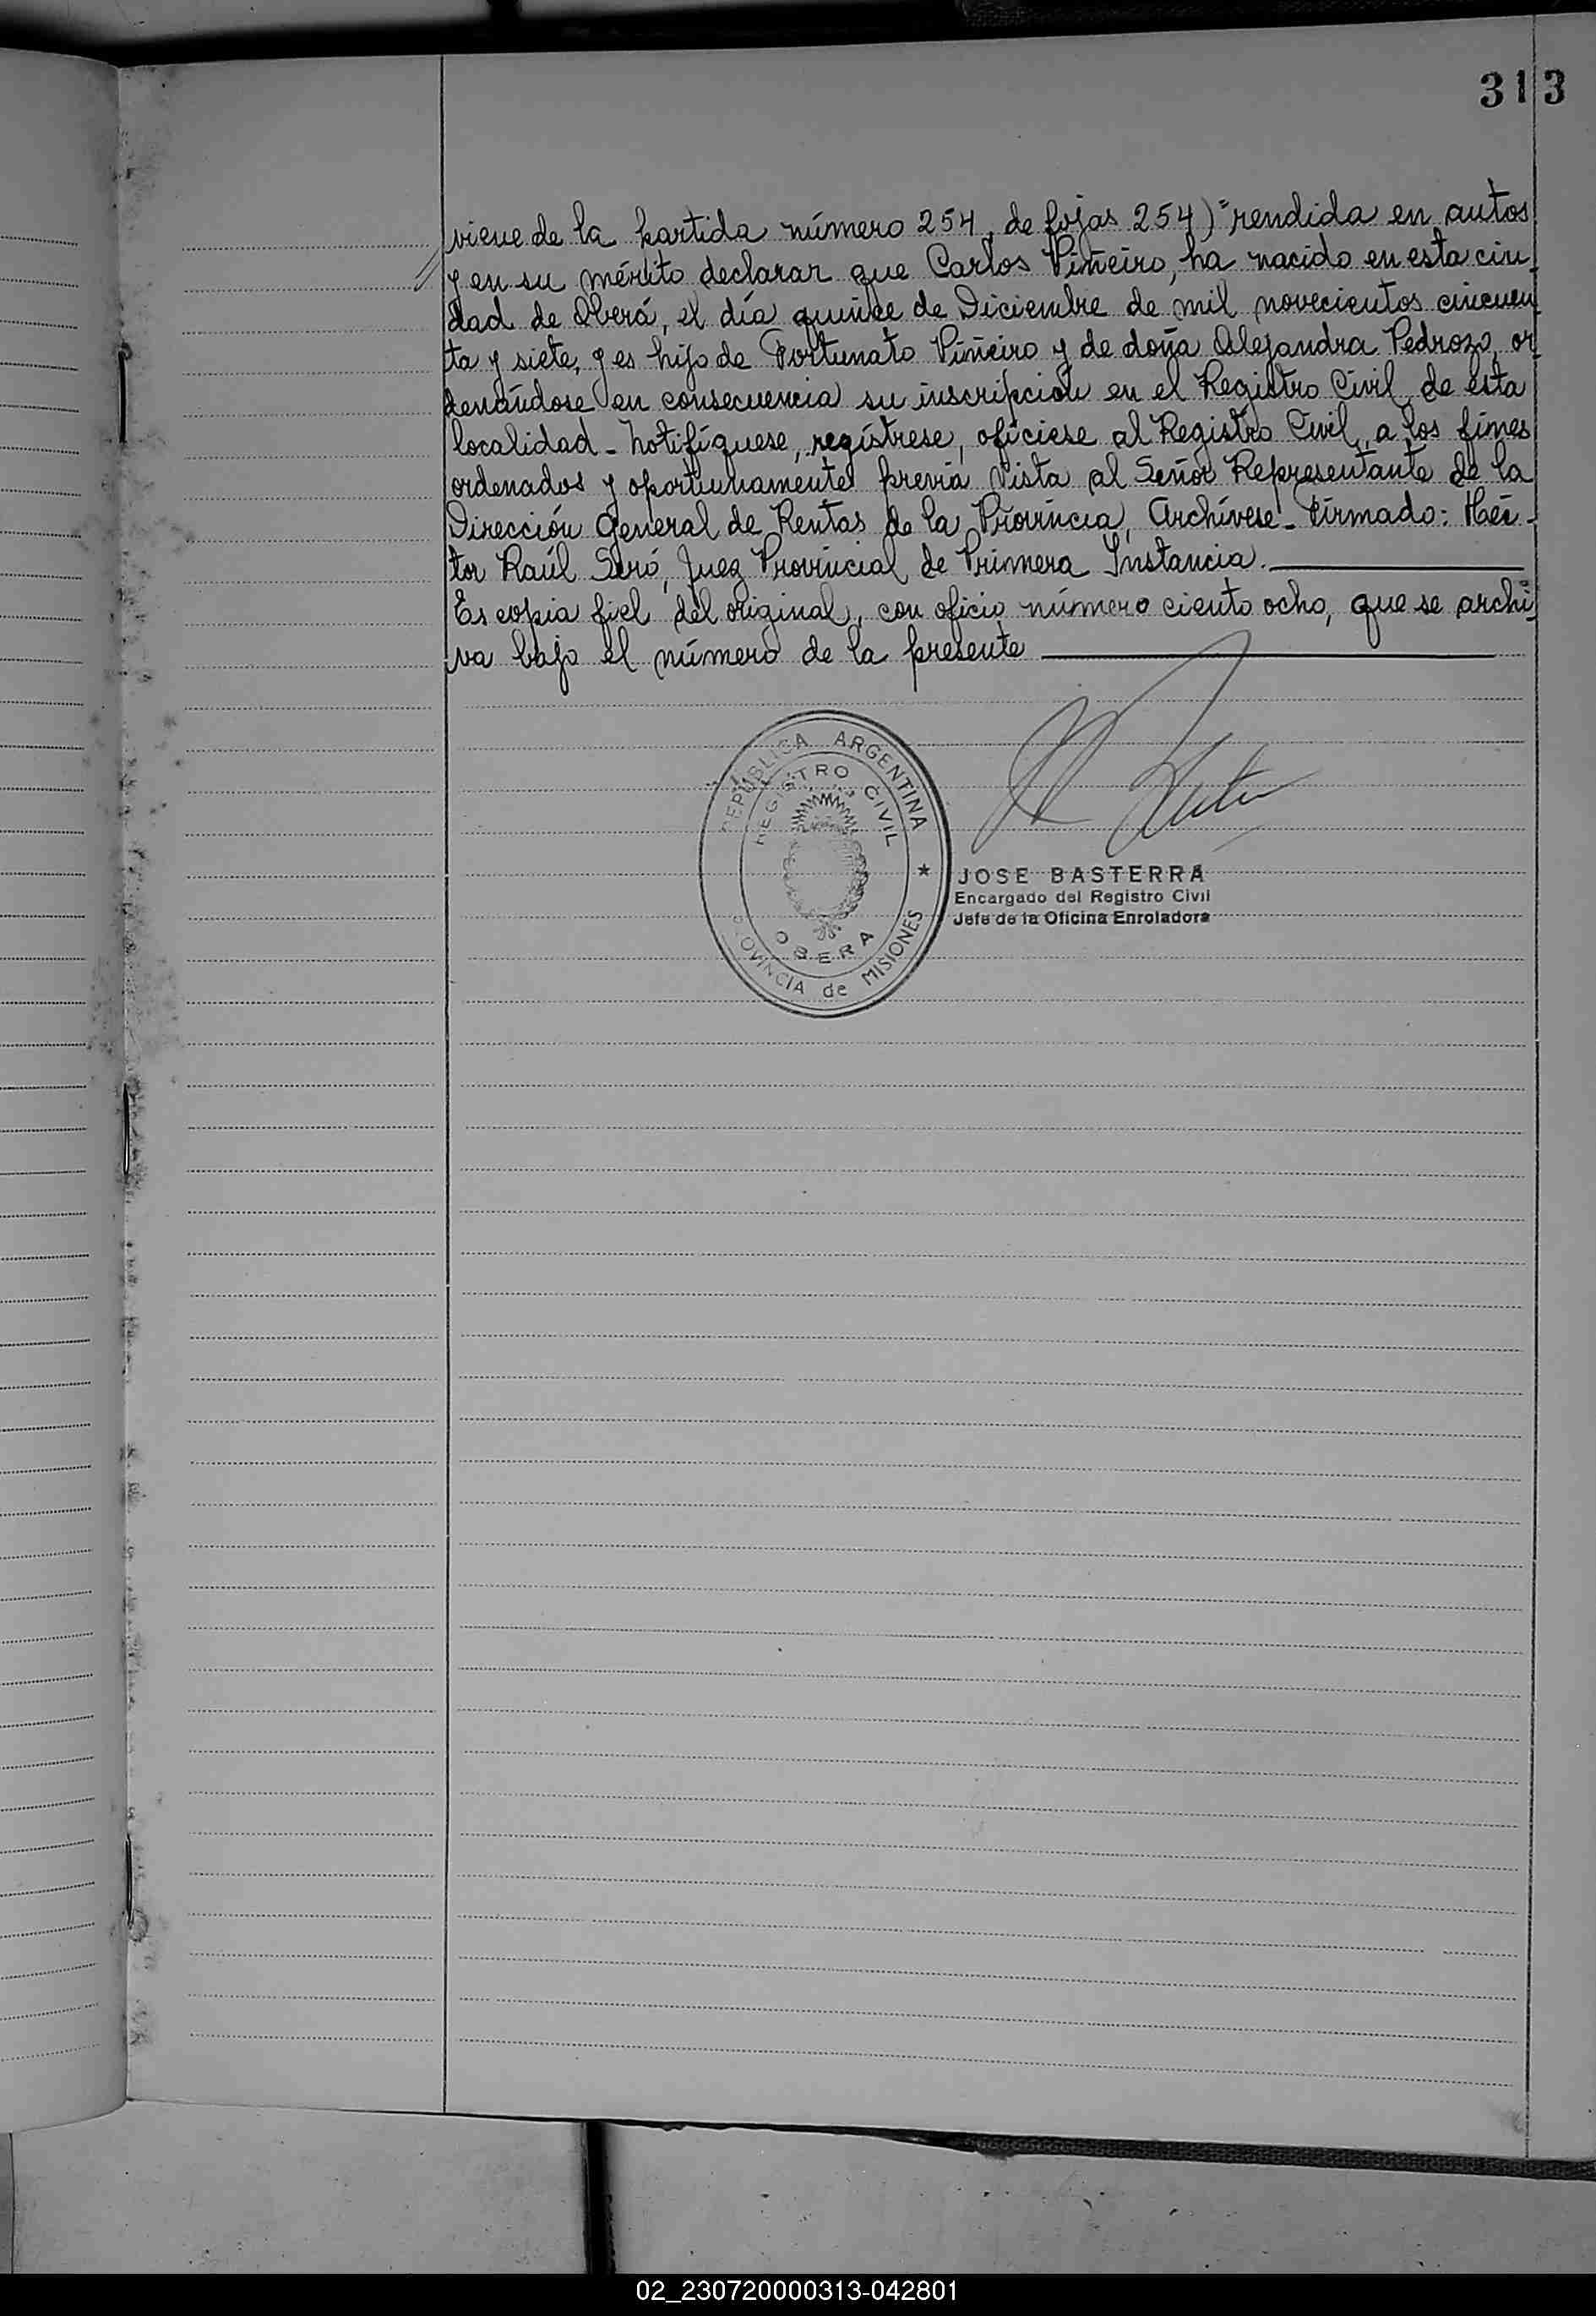 313
viene de la partida número 254, de fojas 254) "rendida en autos
y en su mérito declarar que Carlos Piñeiro, ha nacido en esta ciu-
dad de Oberá, el día quince de Diciembre de mil novecientos cincuen-
ta y siete, y es hijo de Fortunato Piñeiro y de doña Alejandra Pedrozo, or-
denándose en consecuencia su inscripción en el Registro Civil de esta
localidad - Notifíquese, regístrese, ofíciese al Registro Civil, a los fines
ordenados y oportunamente previa vista al Señor Representante de la
Dirección General de Rentas de la Provincia, Archívese - Firmado: Héc-
tor Raúl Seró, Juez Provincial de Primera Instancia.
Es copia fiel del original, con oficio número ciento ocho, que se archi-
va bajo el número de la presente
REPUBLICA ARGENTINA
REGISTRO CIVIL
OBERA
PROVINCIA de MISIONES
JOSE BASTERRA
Encargado del Registro Civil
Jefe de la Oficina Enroladora
02_230720000313-042801